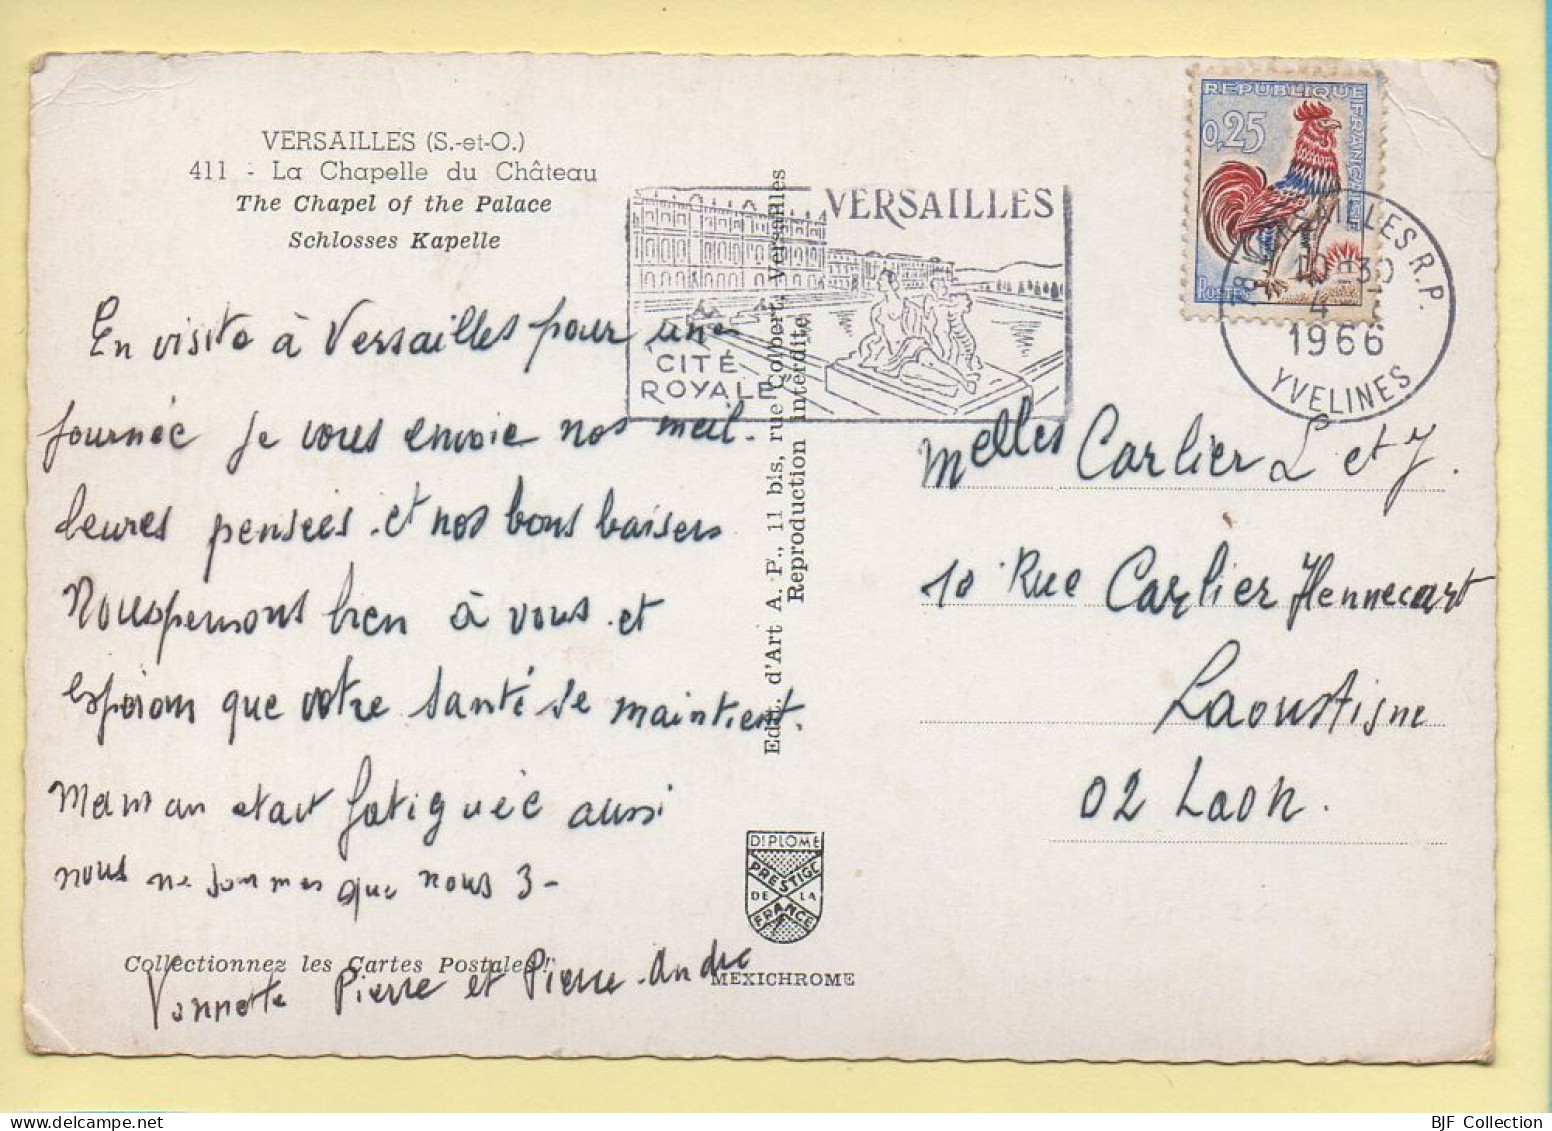 VERSAILLES (S.-et-O.)
411 - La Chapelle du Château
The Chapel of the Palace
Schlosses Kapelle
VERSAILLES
CITÉ
ROYALE
REPUBLIQUE FRANÇAISE
0,25
POSTES
78 VERSAILLES R.P.
10-30
4
1966
YVELINES
En visite à Versailles pour une
journée je vous envoie nos meil-
leures pensées et nos bons baisers
Nous pensons bien à vous et
espérons que votre santé se maintient.
Maman etait fatiguée aussi
nous ne sommes que nous 3 -
Pierre et Pierre-André
Melles Carlier L et J.
10 Rue Carlier Hennecart
02 Laon.
Edit. d'Art A. P., 11 bis, rue Colbert, Versailles
Reproduction interdite
DIPLOME
PRESTIGE
DE LA
FRANCE
Collectionnez les Cartes Postales !
MEXICHROME
BJF Collection